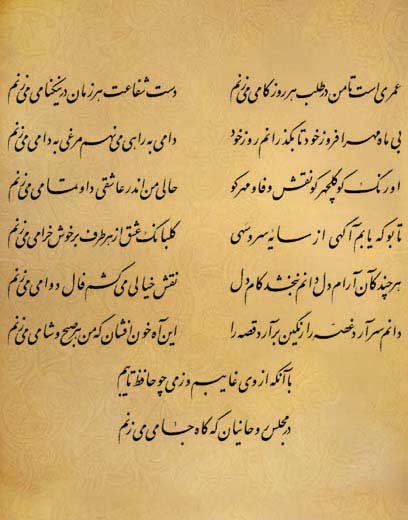 عمری است تا من در طلب هر روز گامی می زنم    دست شفاعت هر زمان در نیکنامی می زنم
بی ماه مهر افروز خود تا بگذرانم روز خود    دامی به راهی می نهم مرغی به دامی می زنم
اورنگ کو گلچهر کو نقش وفا و مهر کو    حالی من اندر عاشقی داو تمامی می زنم
تا بو که یابم آگهی از سایه سرو سهی    گلبانگ عشق از هر طرف بر خوش خرامی می زنم
هر چند کآن آرام دل دانم نبخشد کام دل    نقش خیالی می کشم فال دوامی می زنم
دانم سر آرد غصه را رنگین برآرد قصه را    این آه خون افشان که من هر صبح و شامی می زنم
با آنکه از وی غایبم وز می چو حافظ تایبم
در مجلس روحانیان گه گاه جامی می زنم